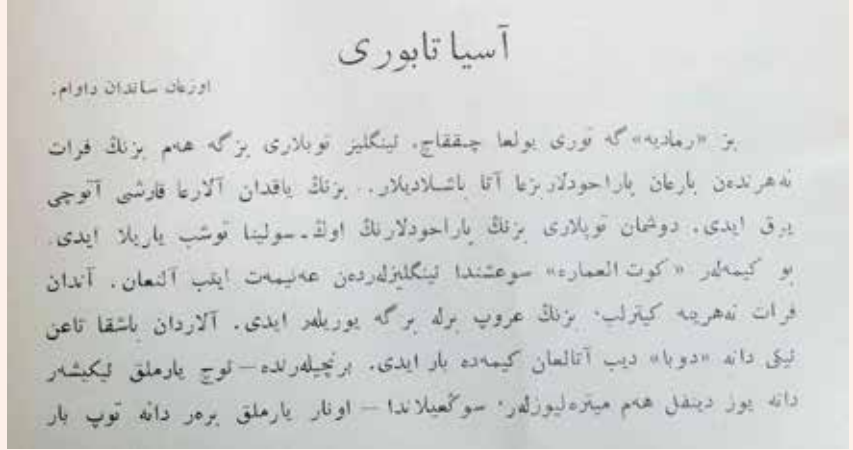 آسيا تابورى
اوزعان ساندان داوام.
بز «رماديە» گە تورى يولعا چىققاچ، ئينگليز توپلارى بزگە هەم بزنڭ فرات
نەهرندەن بارعان پاراحودلاربزعا آتا باشلاديلار. بزنڭ ياقدان آلارعا قارشى آتوچى
يوق ايدى. دوشمان توپلارى بزنڭ پاراحودلارنڭ اوڭ ـ سولينا توشب يارىلا ايدى.
بو كيمەلەر «كوت العمارە» سوعشندا ئينگليزلەردەن عەنيمەت ايتب آلنعان. آندان
فرات نەهرينە كيترلب، بزنڭ عروپ برلە برگە يوريلەر ايدى. آلاردان باشقا تاعن
ئيكى دانە «دوبا» ديب آتالعان كيمەدە بار ايدى. برنچيلەرندە — ئوچ يارملق ئيكيشەر
دانە يوز دينفل هەم ميترەليوزلەر، سوڭعيلاندا — اونار يارملق برەر دانە توپ بار